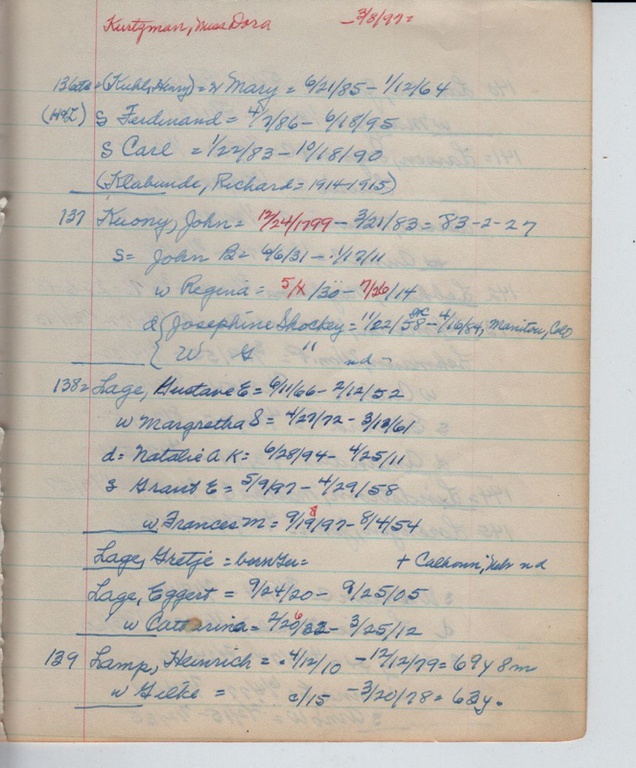 Kurtzman, Miss Dora - 3/8/97=
136 = (Kuhl, Henry) = w Mary = 6/21/85 - 1/12/64
s Ferdinand = 4/7/86 - 6/18/95
s Carl = 1/22/83 - 10/18/90
(Klabunde, Richard = 1914-1915)
137 Kuony, John = 12/24/1799 - 3/21/83 = 83-2-27
s = John B = 6/6/31 - 1/17/11
w Regina = 5/ /30 - 7/26/14
d Josephine Shockey = 11/22/58 - 4/16/84, Manitou, Colo
W G " nd -
138 = Lage, Gustave E = 6/11/66 - 2/12/52
w Margretha S = 4/27/72 - 3/13/61
d = Natalie A K = 6/28/94 - 4/25/11
s Grant E = 5/9/97 - 4/29/58
w Frances M = 9/18/97 - 8/4/54
Lage, Gretje = born Ger = + Calhoun, Nebr nd
Lage, Eggert = 9/24/20 - 9/25/05
w Catharina = 2/26/32 - 3/25/12
139 Lamp, Heinrich = 4/12/10 - 12/12/79 = 69y 8m
w Silke = c/15 - 3/20/78 = 63y.